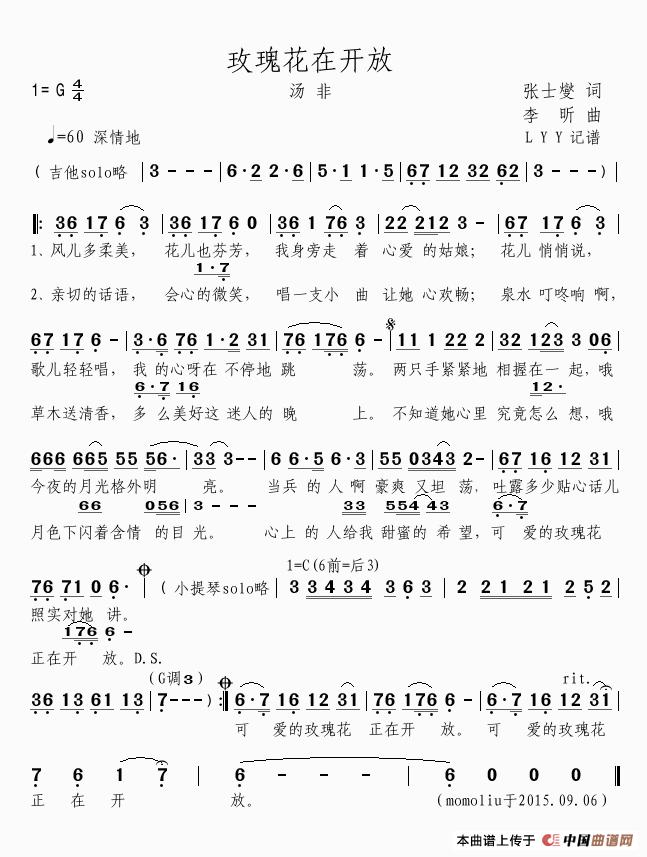 玫瑰花在开放
1=G 4/4 汤 非 张士燮 词
李 昕 曲
♩=60 深情地 LYY记谱
( 吉他solo略 |3 - - - |6·2 2·6 |5·1 1·5 |67 12 32 62 |3 - - - )|
‖: 36 17 6 3 |36 17 6 0 |36 1 76 3 |22 212 3 - |67 17 6 3 |
1、风儿多柔美， 花儿也芬芳， 我身旁走 着 心爱 的姑娘； 花儿 悄悄说，
1·7
2、亲切的话语， 会心的微笑， 唱一支小 曲 让她 心欢畅； 泉水 叮咚响 啊，
67 17 6 - |3·6 76 1·2 31 |76 176 6 - |11 1 22 2 |32 123 3 06 |
歌儿轻轻唱， 我 的心呀在 不停地 跳 荡。 两只手紧紧地 相握在一 起，哦
6·7 16 12·
草木送清香， 多 么美好这 迷人的 晚 上。 不知道她心里 究竟怎么 想，哦
666 665 55 56· |33 3 - - |6 6·5 6·3 |55 0343 2 - |67 16 12 31 |
今夜的月光格外明 亮。 当兵 的 人 啊 豪爽 又坦 荡，吐露多少贴心话儿
66 056 3 33 554 43 6·7
月色下闪着含情 的目 光。 心上 的 人给我 甜蜜的 希 望，可 爱的玫瑰花
1=C(6前=后3)
76 71 0 6· |( 小提琴solo略 |3 3434 3 363 |2 21 21 252 |
照实对她 讲。
176 6 -
正在开 放。D.S.
(G调3) rit.
36 13 61 13 |7 - - - ) :‖ 6·7 16 12 31 |76 176 6 - |6·7 16 12 31 |
可 爱的玫瑰花 正在开 放。 可 爱的玫瑰花
7 6 1 7 | 6 - - - | 6 0 0 0 ‖
正 在 开 放。 (momoliu于2015.09.06)
本曲谱上传于 中国曲谱网